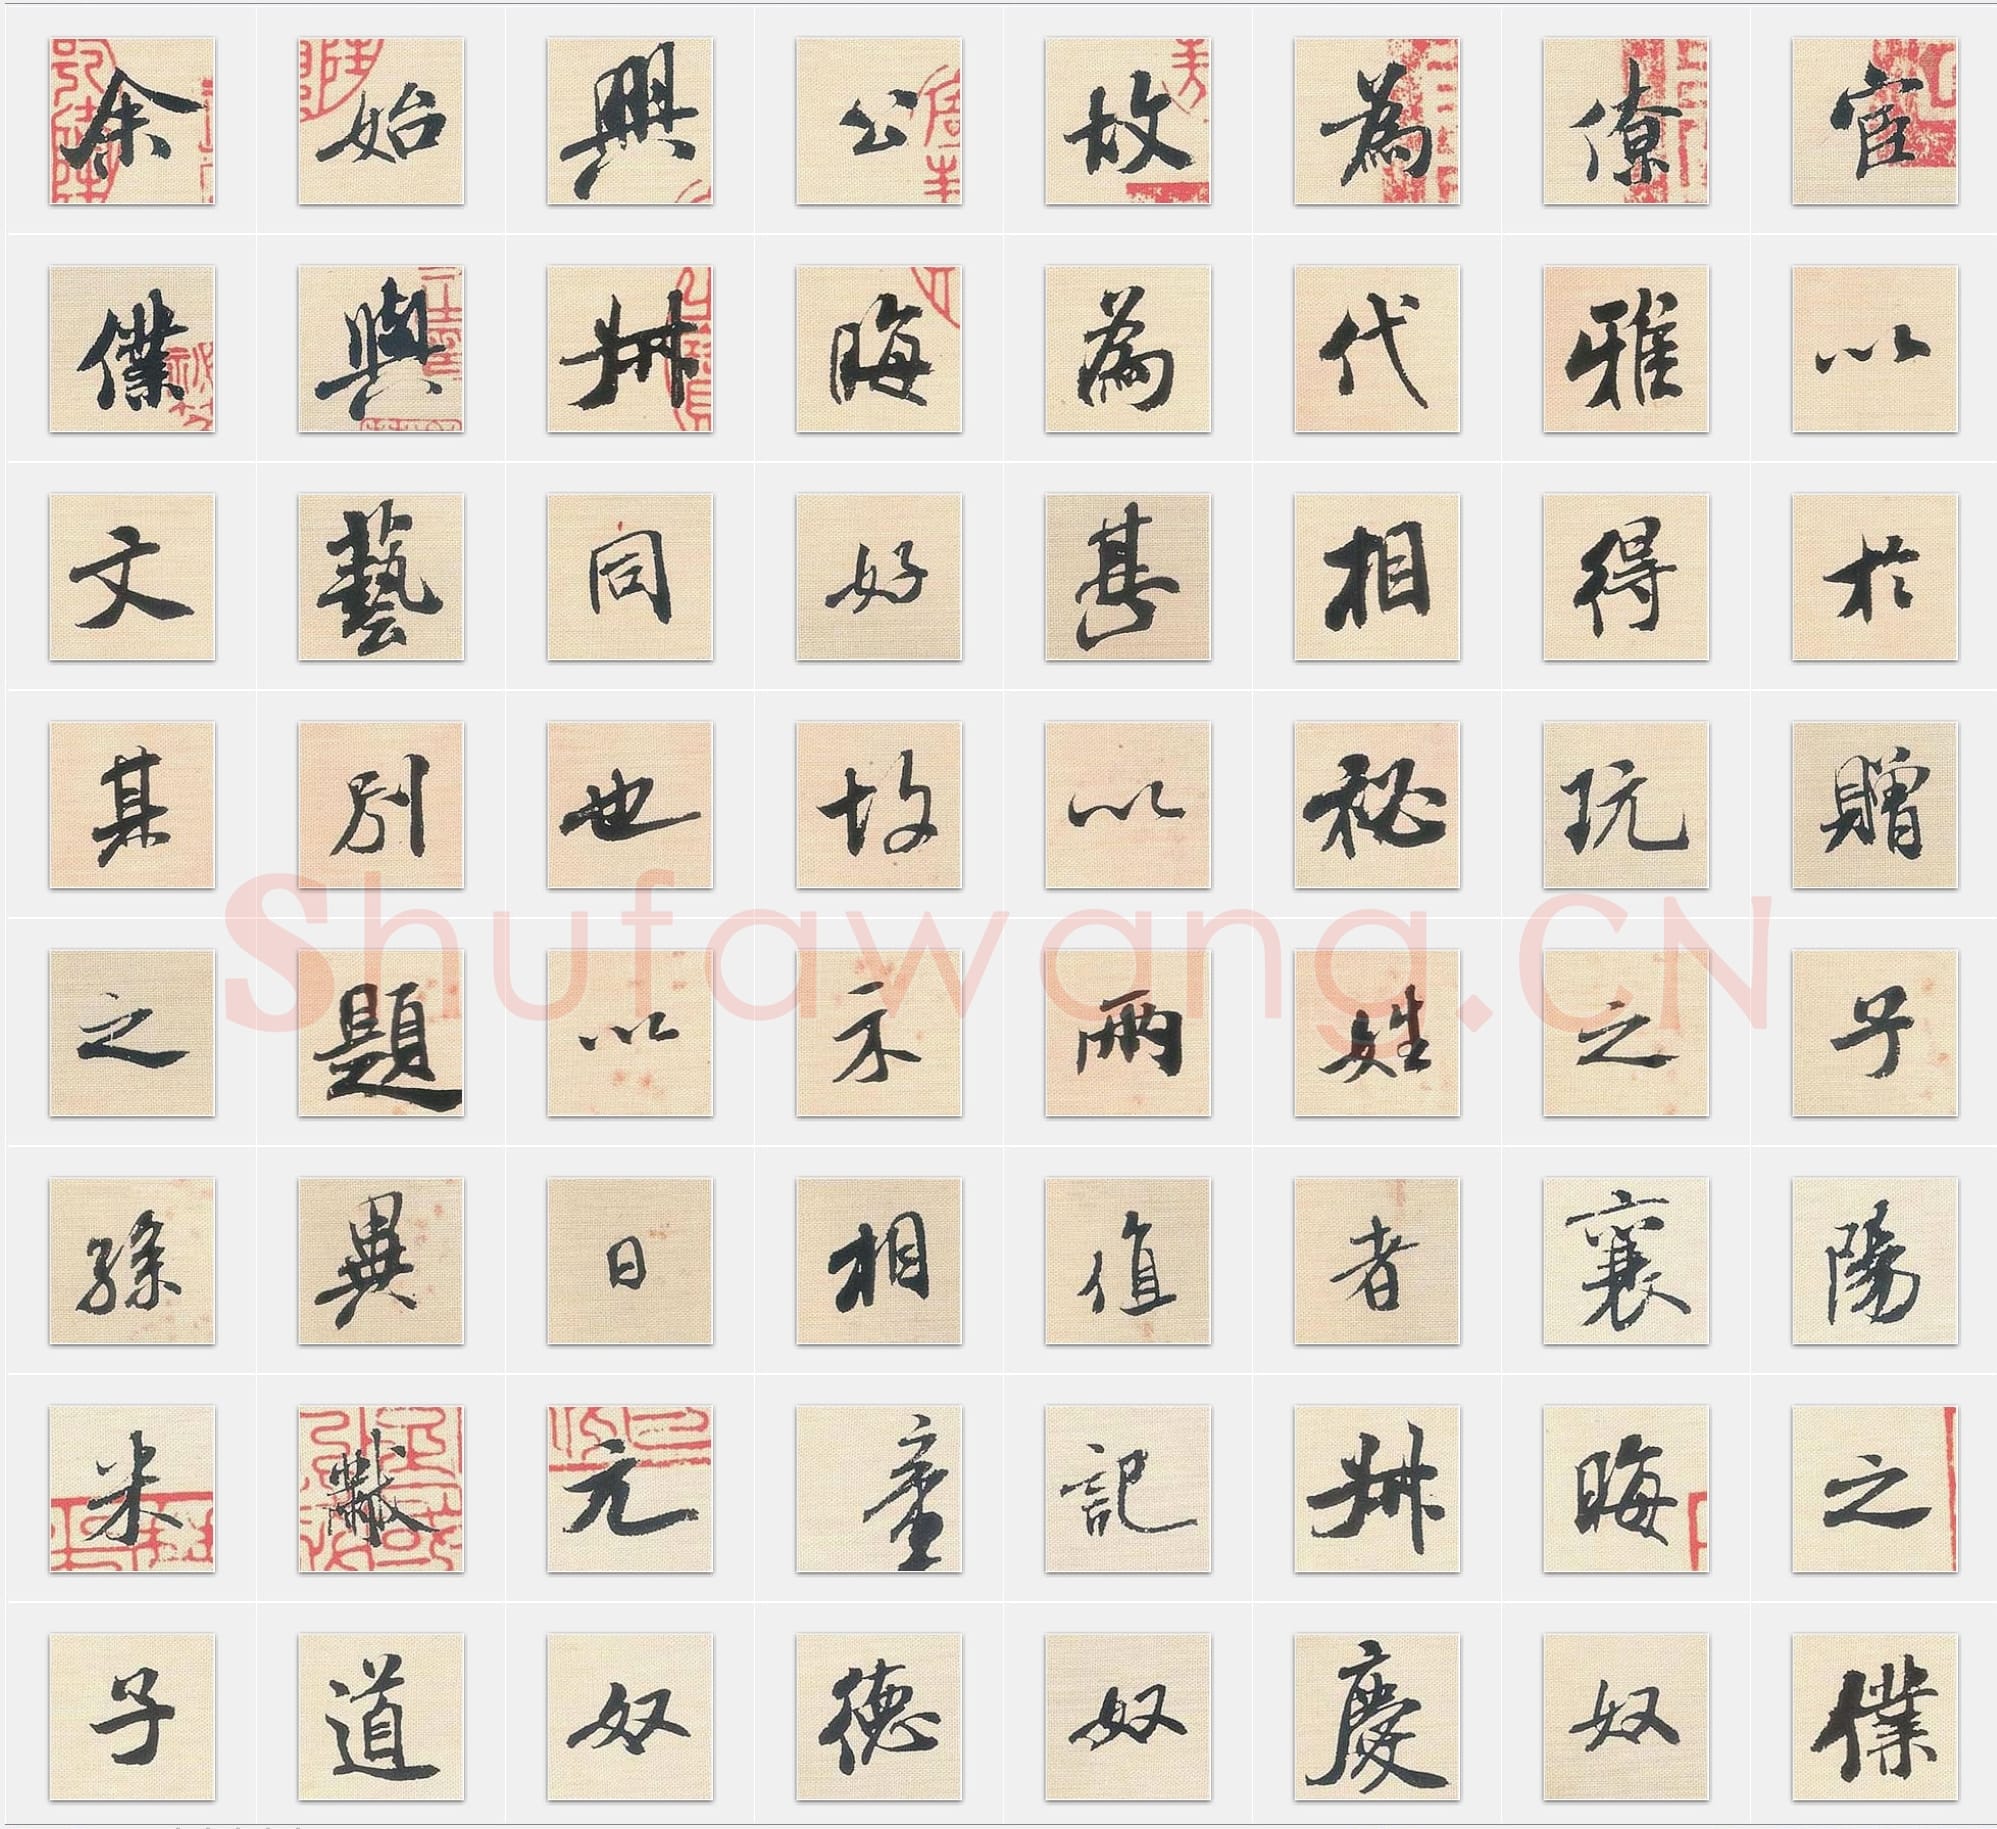 余始興公故為僚宦
僕與叔晦為代雅以
文藝同好甚相得於
其別也故以秘玩贈
之題以示兩姓之子
孫異日相值者襄陽
米黻元章記叔晦之
子道奴德奴慶奴僕
Shufawang.CN